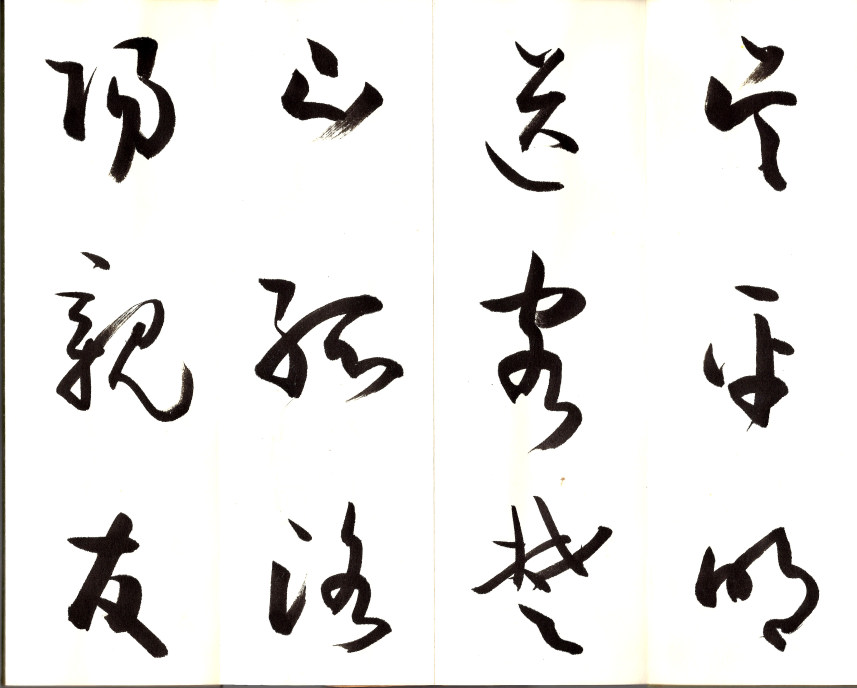 吳平明
送客楚
山孤洛
陽親友